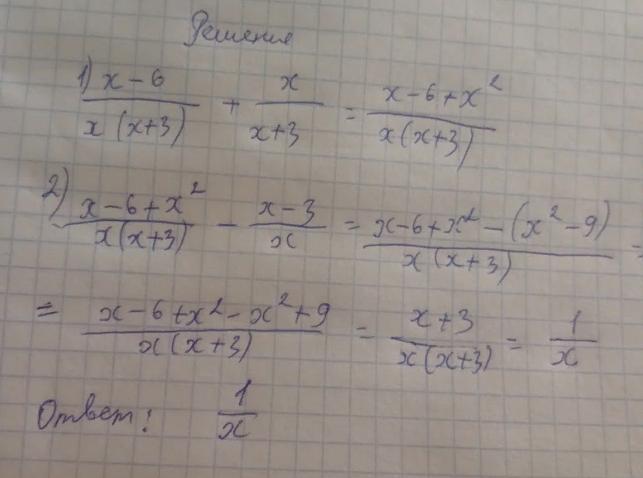 Решения
1) (x-6)/(x(x+3)) + x/(x+3) = (x-6+x²)/(x(x+3))
2) (x-6+x²)/(x(x+3)) - (x-3)/x = (x-6+x²-(x²-9))/(x(x+3)) =
= (x-6+x²-x²+9)/(x(x+3)) = (x+3)/(x(x+3)) = 1/x
Ответ: 1/x